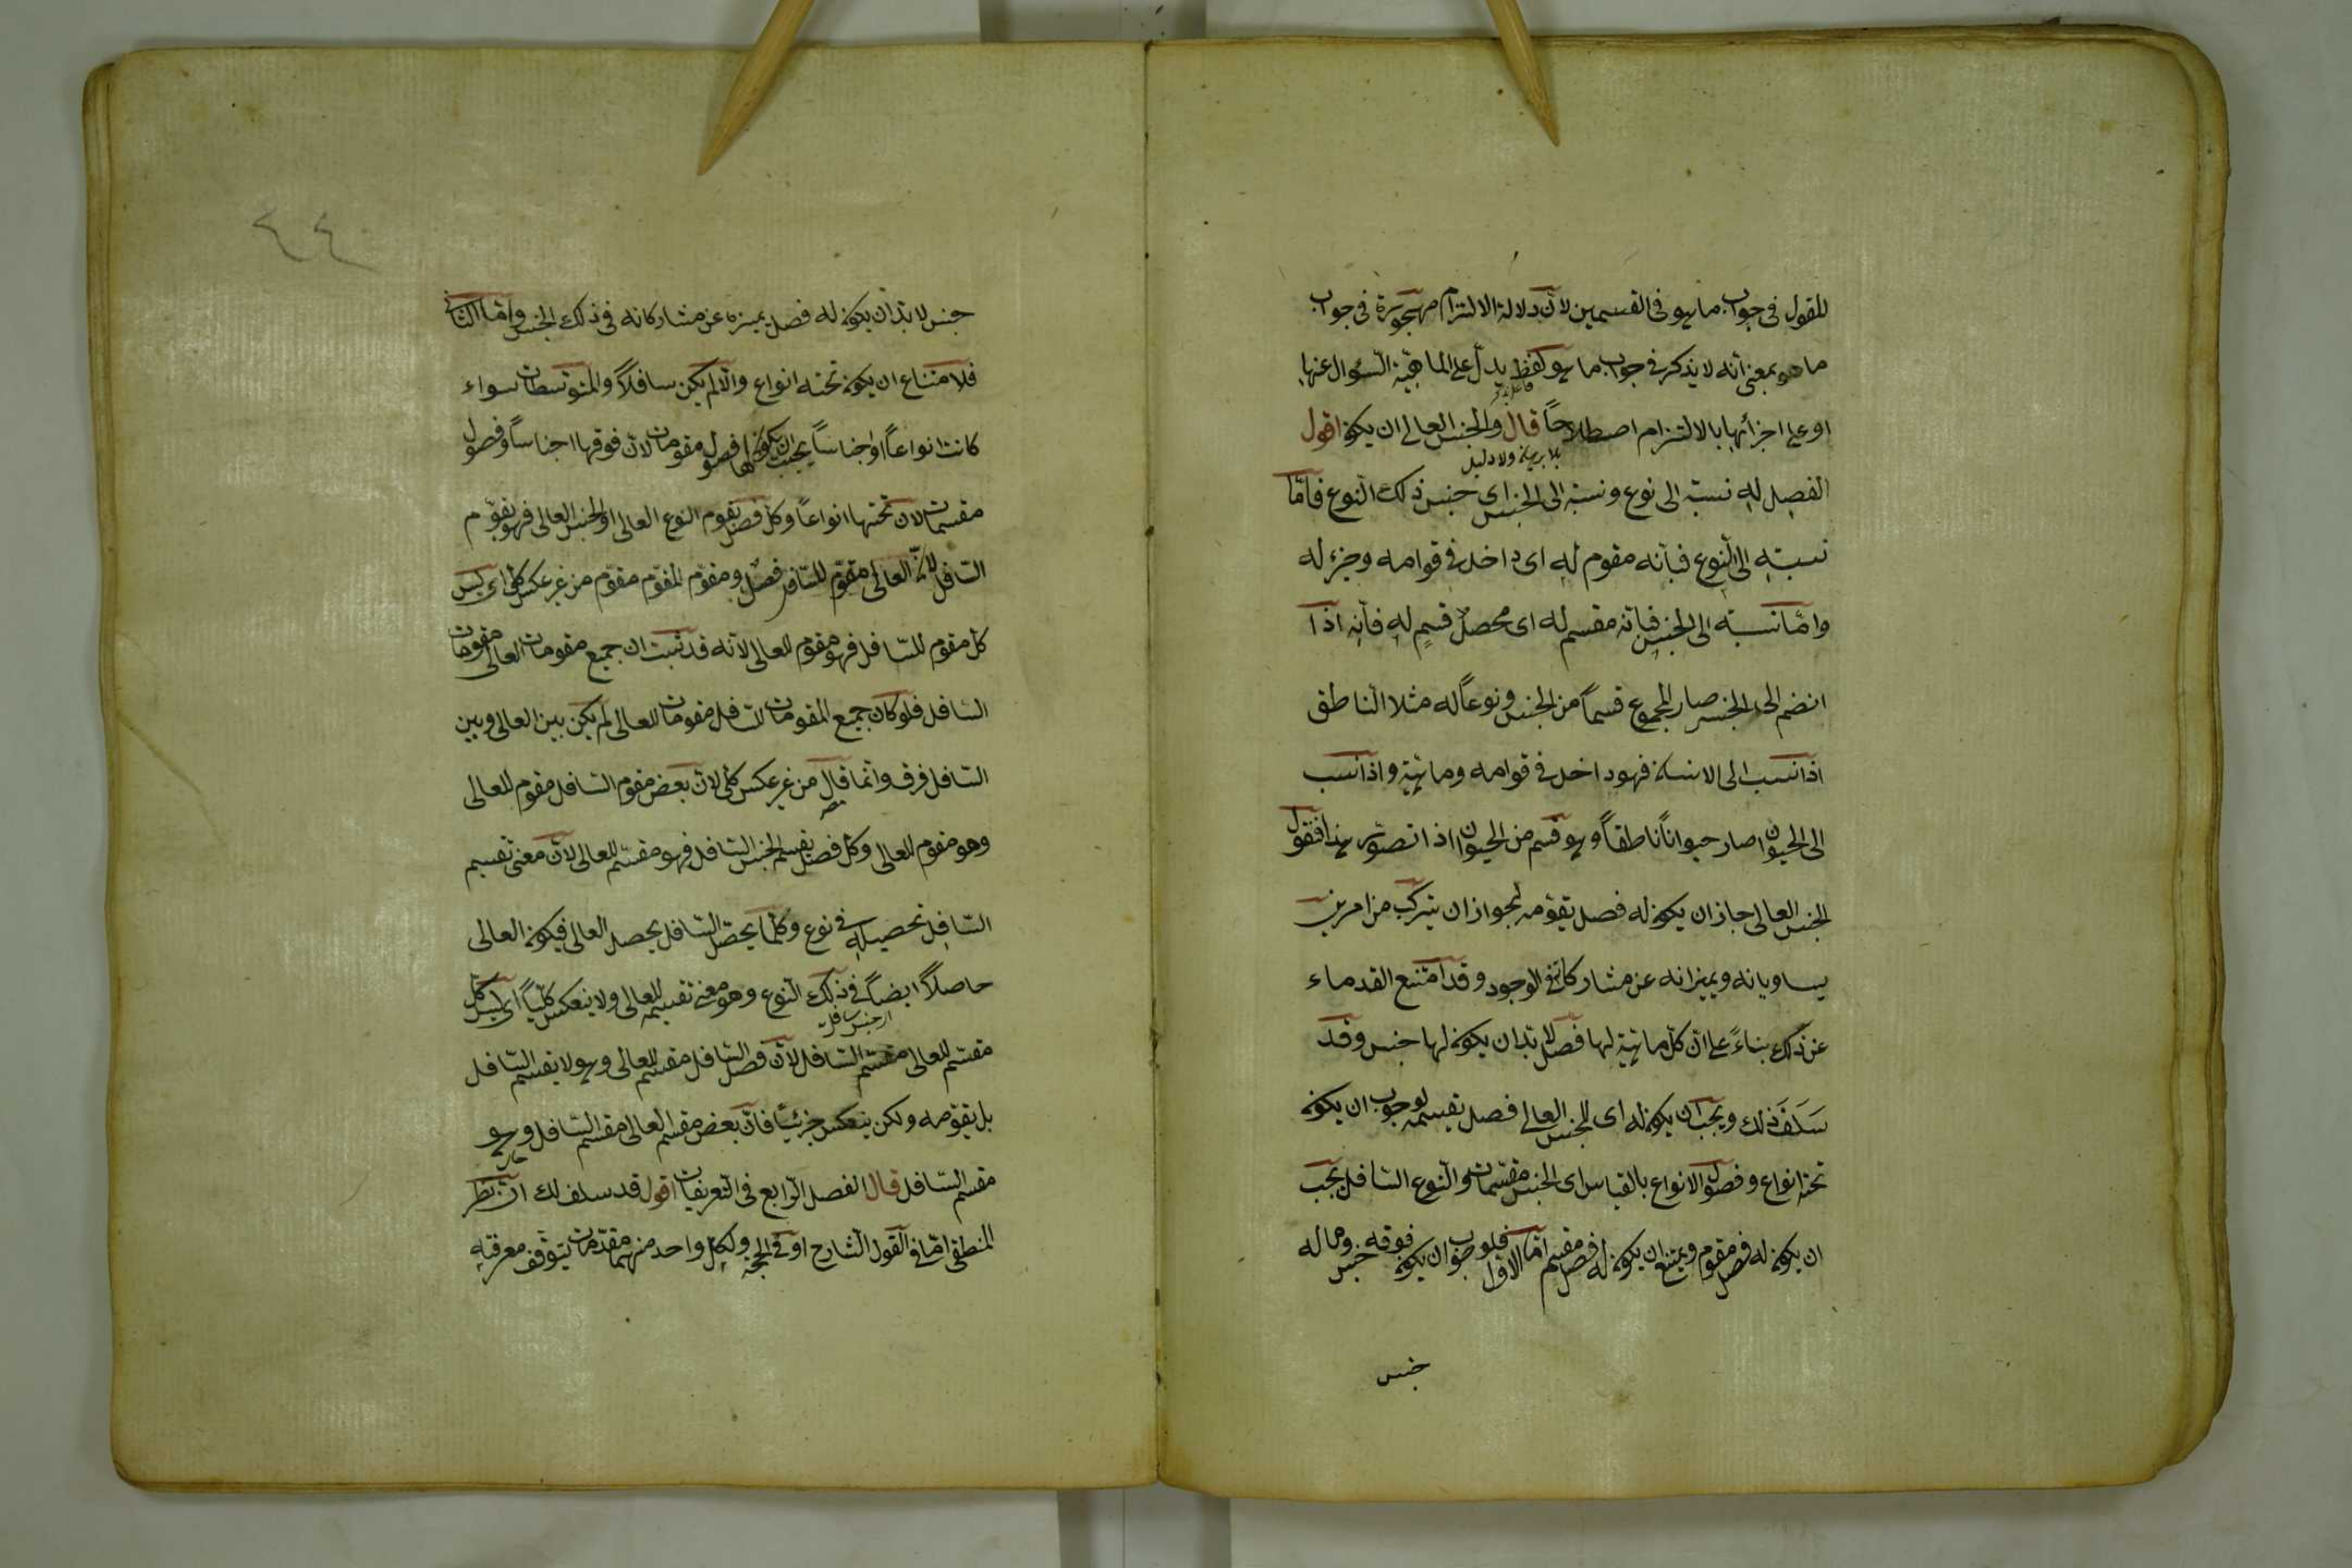 للمقول فى جواب ما هو فى القسمين لان دلالة الالتزام مهجورة فى جواب
ما هو بمعنى انه لا يذكر فى جواب ما هو لفظ يدل على الماهية المسئوال عنها
او على اجزائها بالالتزام اصطلاحاً قال والجنس العالى ان يكون اقول
بلا برهان ولا دليل
الفصل له نسبة الى نوع ونسبة الى الجنس اى جنس ذلك النوع فامّا
نسبته الى النوع فبانه مقوم له اى داخل فى قوامه وجزء له
وامّا نسبته الى الجنس فبانه مقسم له اى محصل قسم له فانه اذا
انضم الى الجنس صار المجموع قسماً من الجنس ونوعاً له مثلا الناطق
اذا نسب الى الانسان فهو داخل فى قوامه وماهيته واذا نسب
الى الحيوان صار حيواناً ناطقاً وهو قسم من الحيوان اذا تصور هذا فنقول
الجنس العالى جاز ان يكون له فصل يقومه لجواز ان يتركب من امرين
يساويانه ويميزانه عن مشاركاته فى الوجود وقد امتنع القدماء
عن ذلك بناءً على انّ كل ماهية لها فصل لا بد ان يكون لها جنس وقد
سَلَفَ ذلك ويجب ان يكون له اى للجنس العالى فصل يقسمه لوجوب ان يكون
تحته انواع وفصول الانواع بالقياس اى الجنس مقسمات والنوع السافل يجب
ان يكون له فصل مقوم ويمتنع ان يكون له فصل مقسم امّا الاول فلوجوب ان يكون فوقه جنس وما له
جنس
٤٤
جنس لا بد ان يكون له فصل يميزه عن مشاركاته فى ذلك الجنس وامّا الثانى
فلامتناع ان يكون تحته انواع والا لم يكن سافلاً والمتوسطات سواء
كانت انواعاً او اجناساً يجب ان يكون لها فصول مقومات لان فوقها اجناساً وفصول
مقسمات لان تحتها انواعاً وكل فصل يقوم النوع العالى او الجنس العالى فهو يقوّم
السافل لانّ العالى مقوّم للسافل ومقوّم المقوّم مقوّم من غير عكس كلى اى ليس
كل مقوم للسافل فهو مقوم للعالى لانه قد ثبت ان جميع مقومات العالى مقومات
السافل فلو كان جميع المقومات للسافل مقومات للعالى لم يكن بين العالى وبين
السافل فرق وانما قال من غير عكس كلى لان بعض مقوم السافل مقوم للعالى
وهو مقوم للعالى وكل فصل يقسم الجنس السافل فهو مقسّم للعالى لان معنى تقسيم
السافل تحصيله فى نوع وكلما يحصل السافل يحصل العالى فيكون العالى
حاصلاً ايضاً فى ذلك النوع وهو معنى تقسيمه للعالى ولا ينعكس كلّيّاً اى ليس كل
مقسّم للعالى مقسّم السافل لان فصل السافل مقسم للعالى وهو لا يقسم السافل
بل يقوّمه ولكن ينعكس جزئيّاً فان بعض مقسم العالى مقسم السافل وهو
مقسم السافل قال الفصل الرابع فى التعريفات اقول قد سلف لك ان نظر
المنطقى امّا فى القول الشارح او فى الحجة ولكل واحد منهما مقدمات يتوقف معرفته